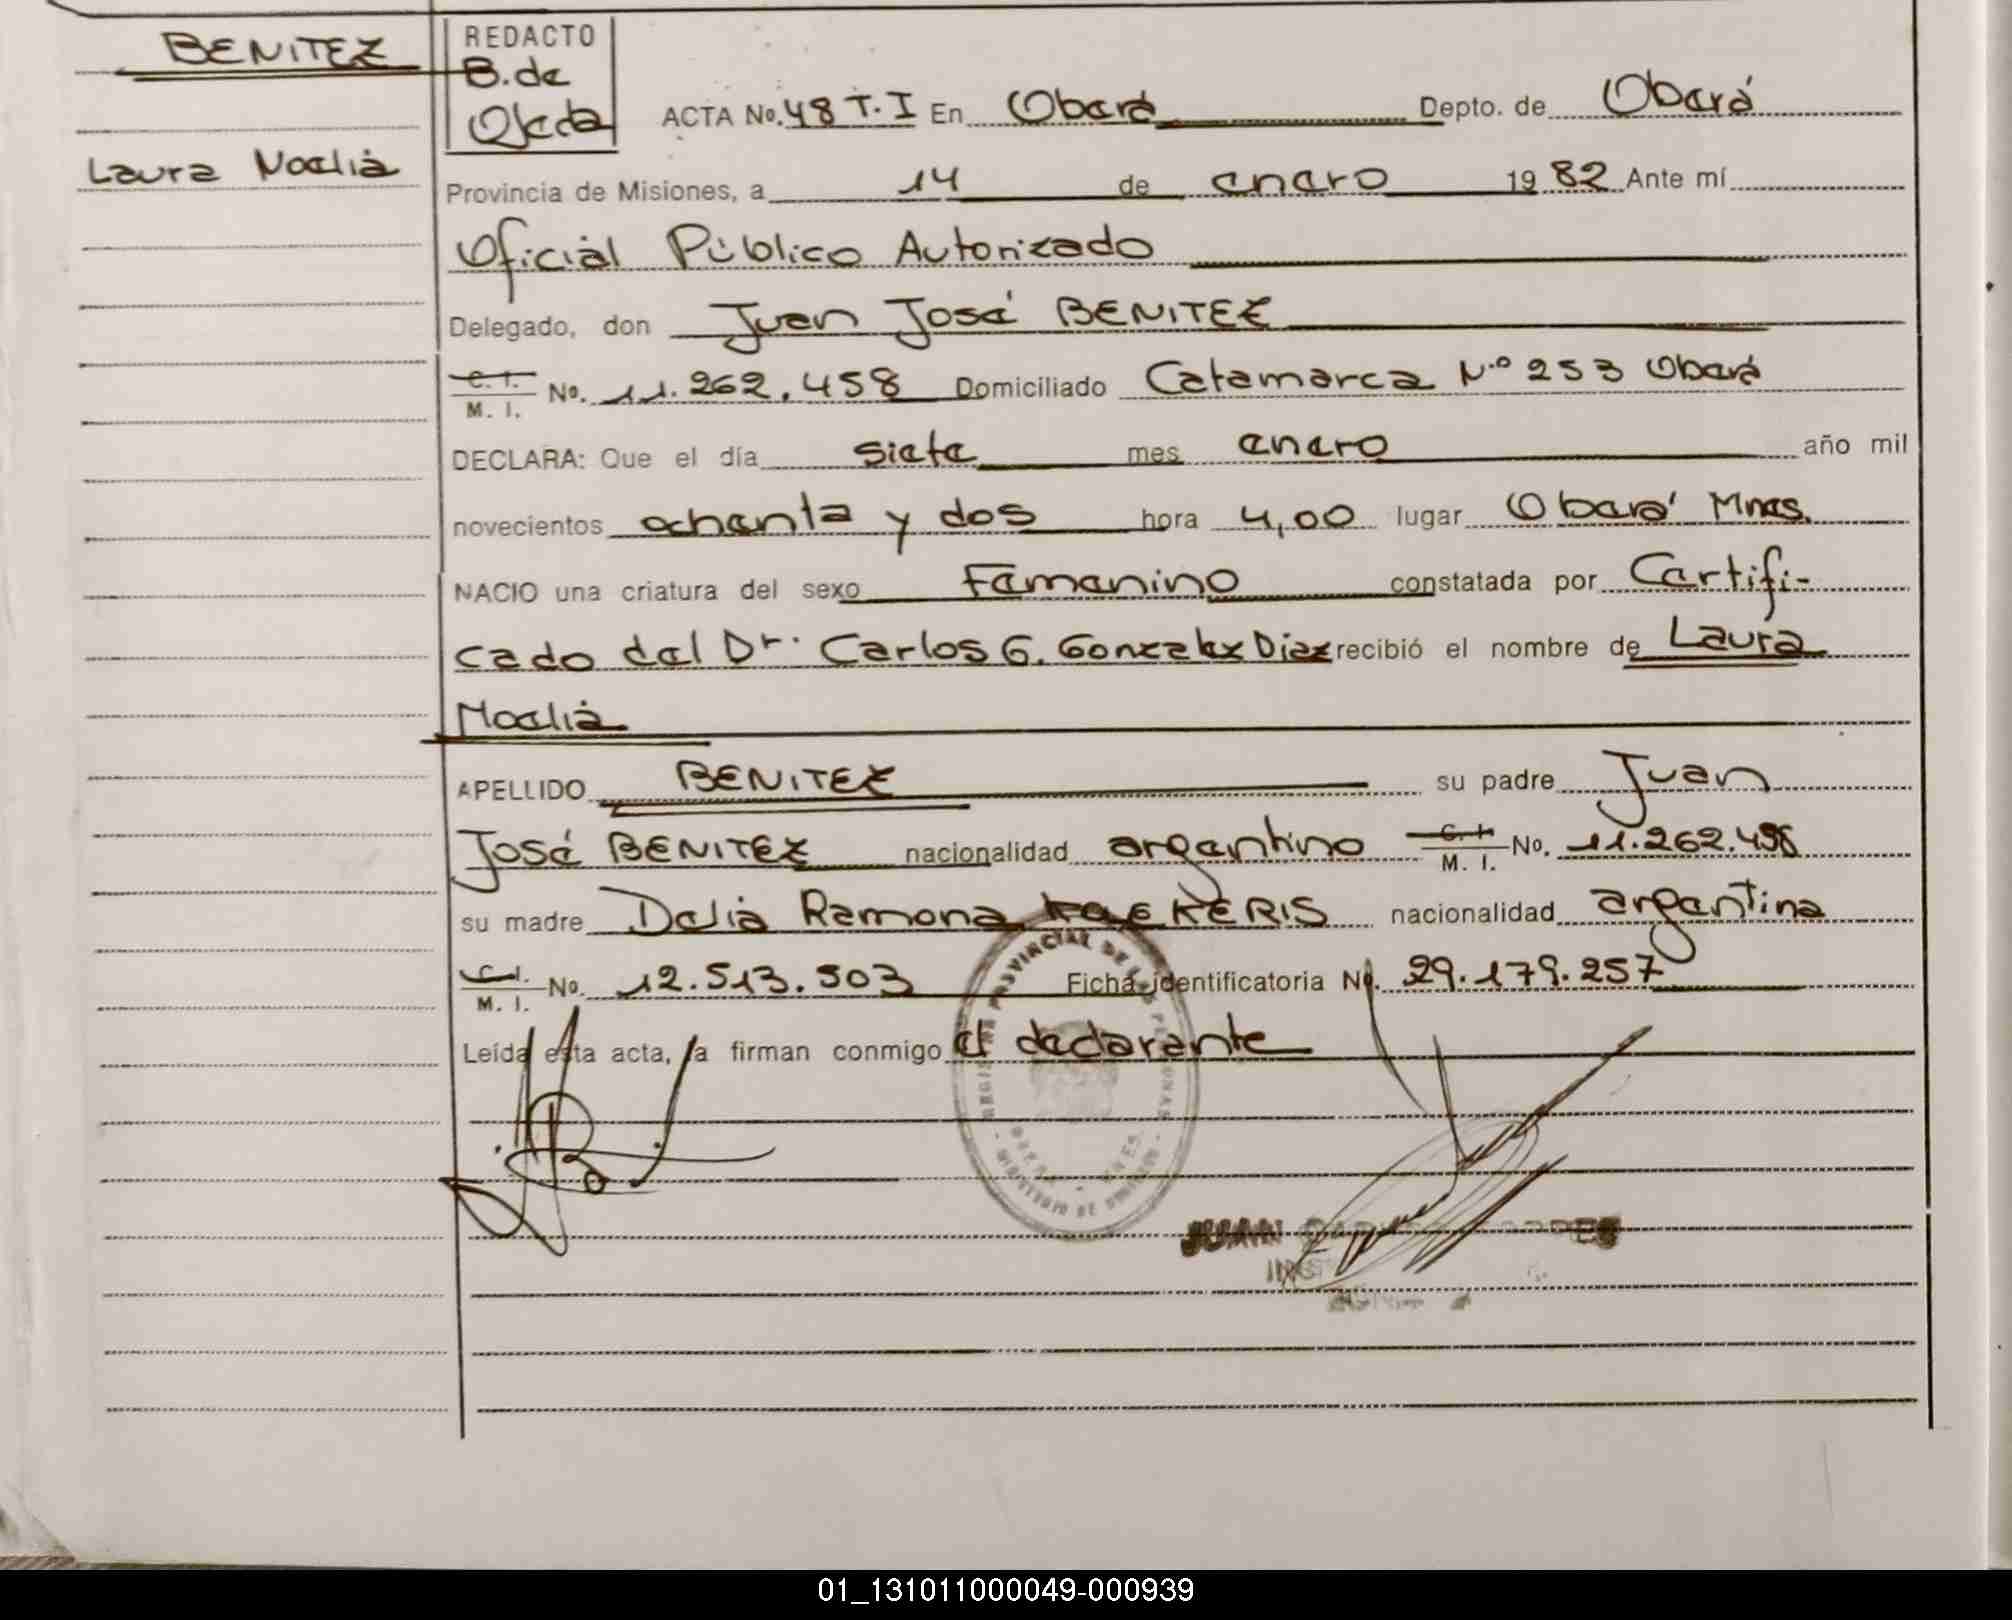 BENITEZ
Laura Noelia
REDACTO
B. de
Ojeda
ACTA No. 48 T. I En Oberá Depto. de Oberá
Provincia de Misiones, a 14 de enero 19 82 Ante mí
Oficial Público Autorizado
Delegado, don Juan José BENITEZ
C. I. M. I. No. 11.262.458 Domiciliado Catamarca N.º 253 Oberá
DECLARA: Que el día siete mes enero año mil
novecientos ochenta y dos hora 4,00 lugar Oberá Mnes.
NACIO una criatura del sexo Femenino constatada por Certifi-
cado del Dr. Carlos G. Gonzalez Diaz recibió el nombre de Laura
Noelia
APELLIDO BENITEZ su padre Juan
José BENITEZ nacionalidad argentino C. I. M. I. No. 11.262.458
su madre Delia Ramona nacionalidad argentina
C. I. M. I. No. 12.513.503 Ficha identificatoria No. 29.179.257
Leída esta acta, la firman conmigo el declarante
REGISTRO PROVINCIAL DE LAS PERSONAS
MINISTERIO DE GOBIERNO
JUAN
01_131011000049-000939